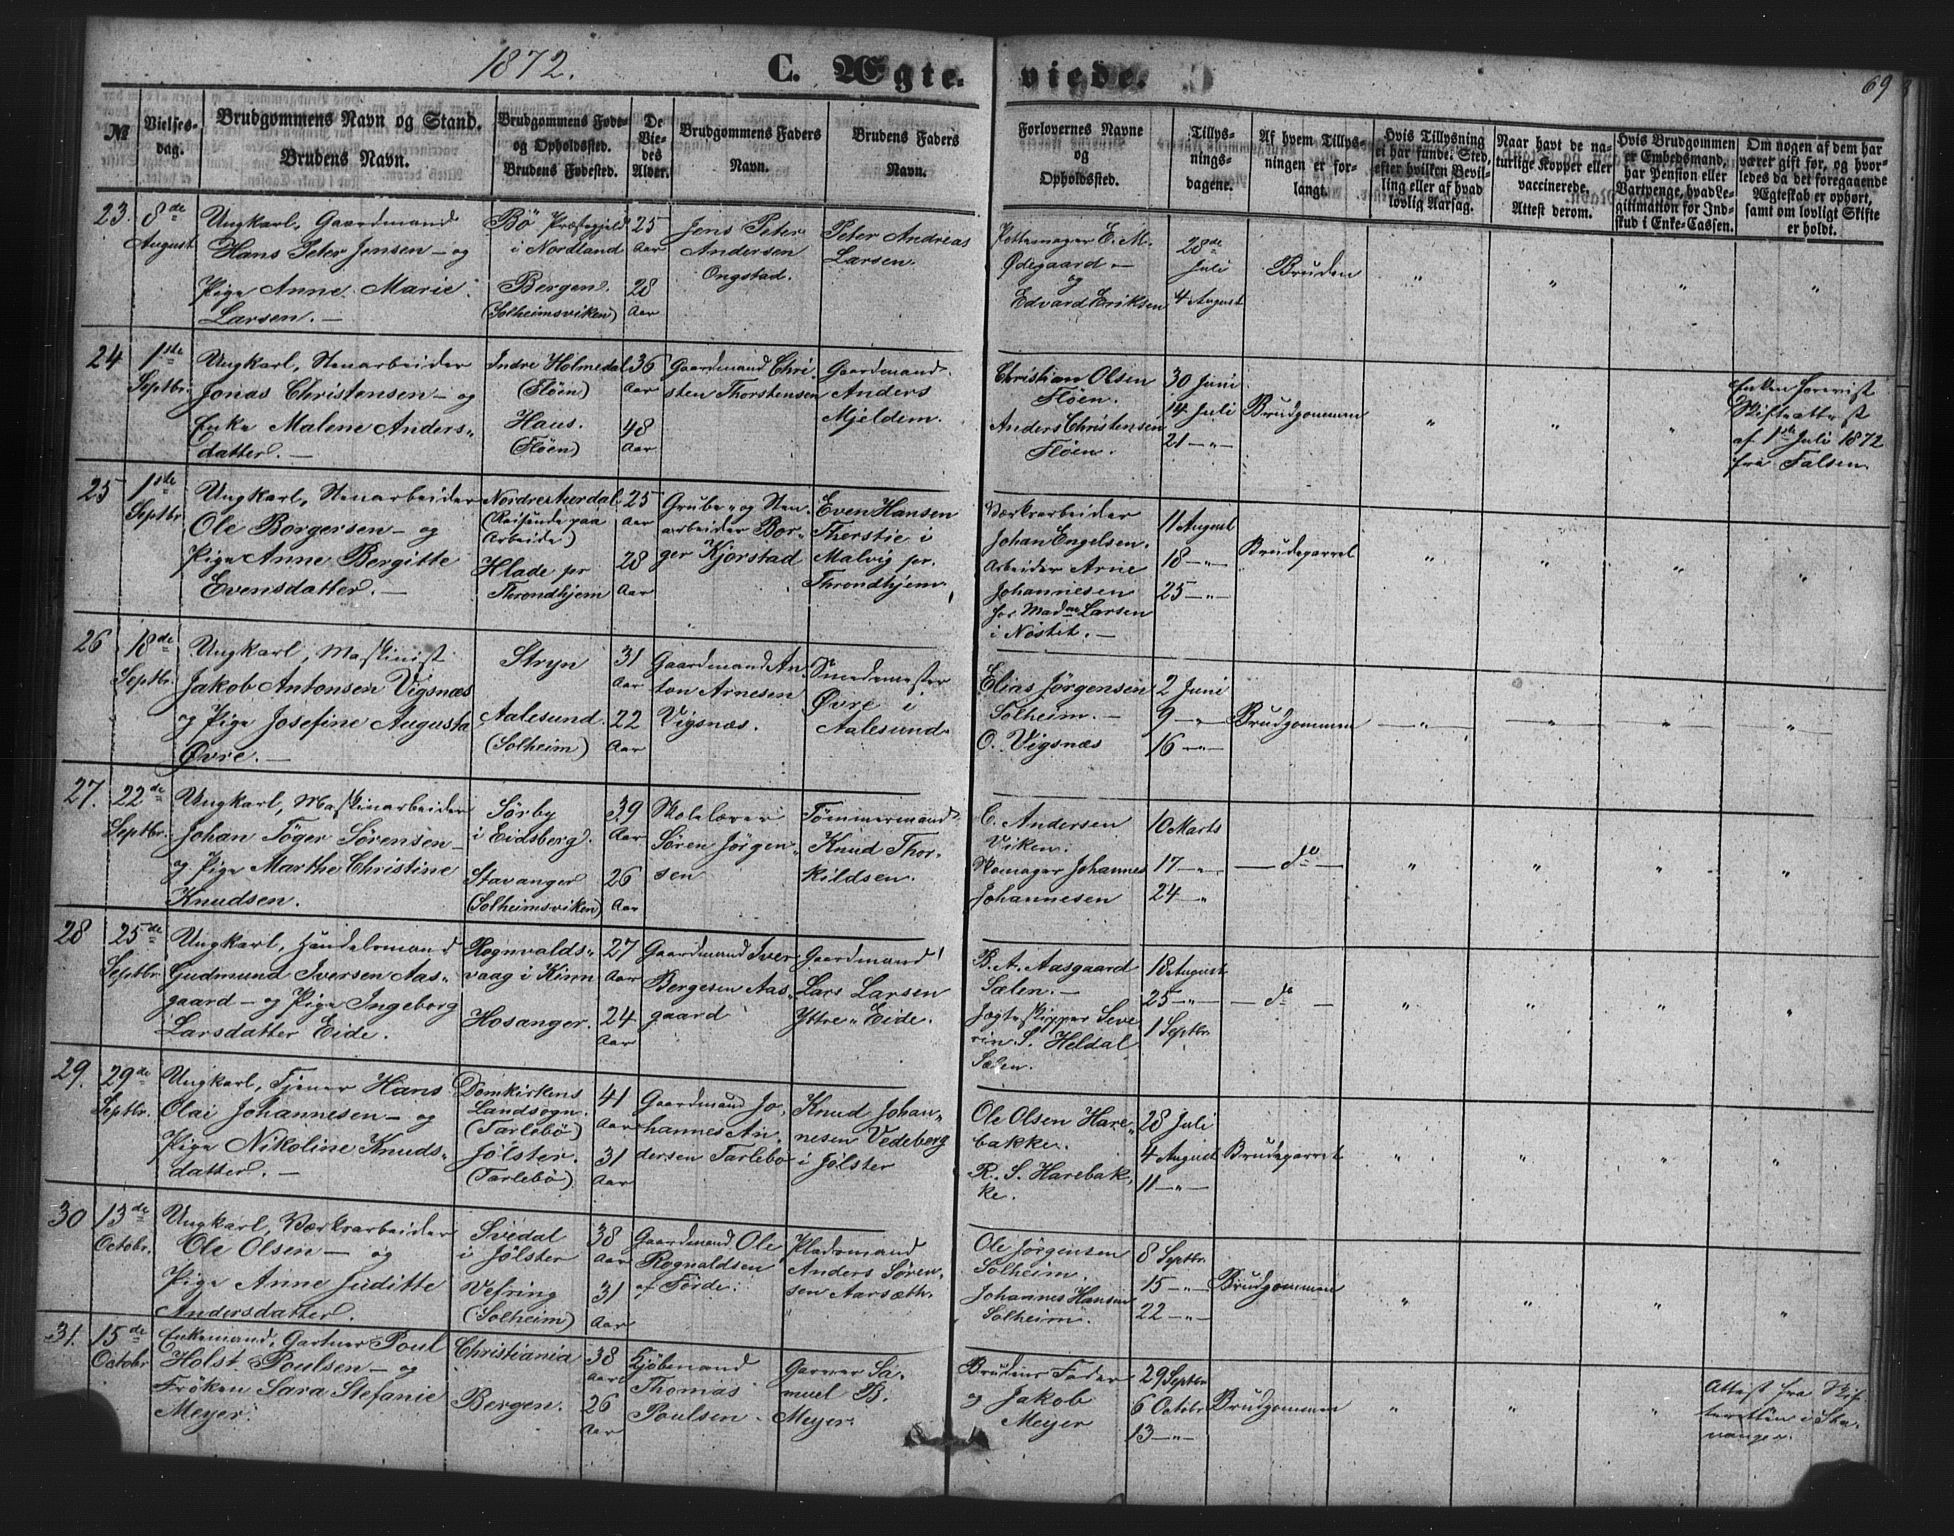 1872.
C. Ægteviede.
69
№
Vielsesdag.
Brudgommens Navn og Stand.
Brudens Navn.
Brudgommens Føde- og Opholdssted.
Brudens Fødested.
De Viedes Alder.
Brudgommens Faders Navn.
Brudens Faders Navn.
Forlovernes Navne og Opholdssted.
Tillysningsdagene.
Af hvem Tillysningen er forlangt.
Hvis Tillysning ei har fundet Sted, efter hvilken Bevilling eller af hvad lovlig Aarsag.
Naar havt de naturlige Kopper eller vaccinerede. Attest derom.
Hvis Brudgommen er Embedsmand, har Pension eller Vartpenge, hvad Legitimation for Indskud i Enke-Cassen.
Om nogen af dem har været gift før, og hvorledes da det foregaaende Ægteskab er ophørt, samt om lovligt Skifte er holdt.
23. 8de August
Ungkarl, Gaardmand
Hans Peter Jensen – og
Pige Anne Marie
Larsen. –
Bö Præstegjeld
i Nordland
Bergen.
(Solheimsviken)
25 Aar
28 Aar
Jens Peter
Andersen
Ongstad.
Peter Andreas
Larsen.
Pottemager E. M.
Ødegaard –
og
Edvard Eriksen
28de Juli
4 August
Bruden
" " " "
24 1ste Septbr.
Ungkarl, Stenarbeider
Jonas Christensen – og
Enke Malene Anders-
datter. –
Indre Holmedal
(Flöen)
Haus.
(Flöen)
36 Aar
48 Aar
Gaardmand Chri
sten Thorstensen
Gaardmand
Anders
Mjeldem.
Christian Olsen
Flöen.
Anders Christensen
Flöen.
30 Juni
14 Juli
21 – " –
Brudgommen
" " "
Enken forevist
Skifteattest
af 1ste Juli 1872
fra Falsen.
25 1ste Septbr
Ungkarl, Stenarbeider
Ole Borgersen – og
Pige Anne Bergitte
Evensdatter. –
Nordre Aurdal
(Reisende paa
Arbeide)
Hlade pr
Throndhjem
25 Aar
28 Aar
Grube- og Sten
arbeider Bor-
ger Kjorstad
Even Hansen
Therstie i
Malvig pr.
Throndhjem
Værksarbeider
Johan Engelsen.
Arbeider Arne
Johannesen
for Madme Larsen
i Nöstet. –
11 August
18 – " –
25 – " –
Brudeparret
" " " "
26 18de Septbr.
Ungkarl, Maskinist
Jakob Antonsen Vigsnæs
og Pige Josefine Augusta
Øvre. –
Stryn
Aalesund.
(Solheim)
31 Aar
22 Aar
Gaardmand An
ton Arnesen
Vigsnæs.
Smedemester
Øvre i
Aalesund.
Elias Jörgensen
Solheim. –
O. Vigsnæs
2 Juni
9 – "
16 – " –
Brudgommen
" " " "
27. 22de Septbr.
Ungkarl, Maskinarbeider
Johan Töger Sörensen –
og Pige Marthe Christine
Knudsen.
Sörby
i Eidsberg.
Stavanger
(Solheimsviken)
39 Aar
26 Aar
Skolelærer
Sören Jörgen-
sen
Tömmermand
Knud Thor-
kildsen.
C. Andersen
Viken.
Skomager Johannes
Johannesen
10 Marts
17 – " –
24 – "
– do –
" " " "
28 25de Septbr.
Ungkarl, Handelsmand
Gudmund Iversen Aas-
gaard – og Pige Ingeborg
Larsdatter Eide.
Rognvalds-
vaag i Kinn
Hosanger.
27 Aar
24 Aar
Gaardmand Iver
Bergesen Aas-
gaard
Gaardmand
Lars Larsen
Yttre-Eide.
B. A. Aasgaard
Sælen. –
Jægteskipper Seve
rin S. Heldal
Sælen.
18 August
25 – " –
1 Septbr.
– do –
" " " "
29. 29de Septbr.
Ungkarl, Tjener Hans
Olai Johannesen – og
Pige Nikoline Knuds-
datter. –
Domkirkens
Landsogn.
(Tarlebö)
Jölster.
(Tarlebö)
41 Aar
31 Aar
Gaardmand Jo
hannes An
dersen Tarlebö
Knud Johan-
nesen Vedeberg
i Jölster
Ole Olsen Hare-
bakke.
R. S. Harebak
ke.
28 Juli
4 August
11 – " –
Brudeparret
" " " "
30 13de Octobr.
Ungkarl, Værksarbeider
Ole Olsen – og
Pige Anne Juditte
Andersdatter.
Svedal
i Jölster
Vefring
(Solheim)
38 Aar
31 Aar
Gaardmand Ole
Rognaldsen
af Förde.
Pladsmand
Anders Sören-
sen Aarsæth.
Ole Jörgensen
Solheim.
Johannes Hansen
Solheim.
8 Septbr.
15 – " –
22 – " –
Brudgommen
" " " "
31. 15de Octobr
Enkemand, Gartner Poul
Holst Poulsen – og
Fröken Sara Stefanie
Meyer.
Christiania
Bergen.
38 Aar
26 Aar
Kjöbmand
Thomas
Poulsen.
Garver Sa-
muel B.
Meyer.
Brudens Fader
og Jakob
Meyer
29 Septbr
6 Octobr
13 – " –
Brudgommen
" " "
Attest fra Skif-
teretten i Sta-
vanger.